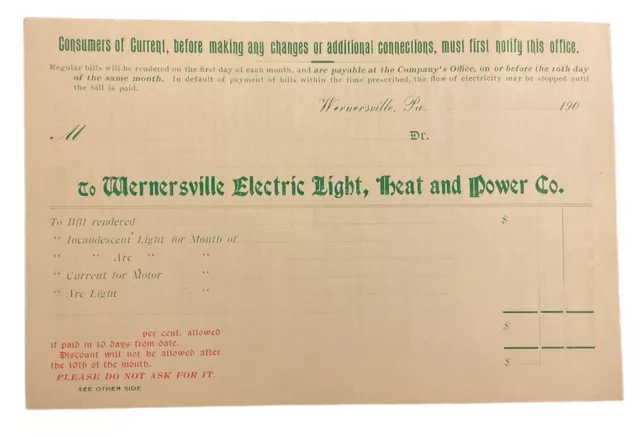 Consumers of Current, before making any changes or additional connections, must first notify this office.
Regular bills will be rendered on the first day of each month, and are payable at the Company's Office, on or before the 10th day
of the same month. In default of payment of bills within the time prescribed, the flow of electricity may be stopped until
the bill is paid.
Wernersville, Pa. 190
M Dr.
To Wernersville Electric Light, Heat and Power Co.
To Bill rendered $
" Incandescent Light for Month of
" " Arc " "
" Current for Motor "
" Arc Light "
per cent. allowed
if paid in 10 days from date. $
Discount will not be allowed after
the 10th of the month. $
PLEASE DO NOT ASK FOR IT.
SEE OTHER SIDE